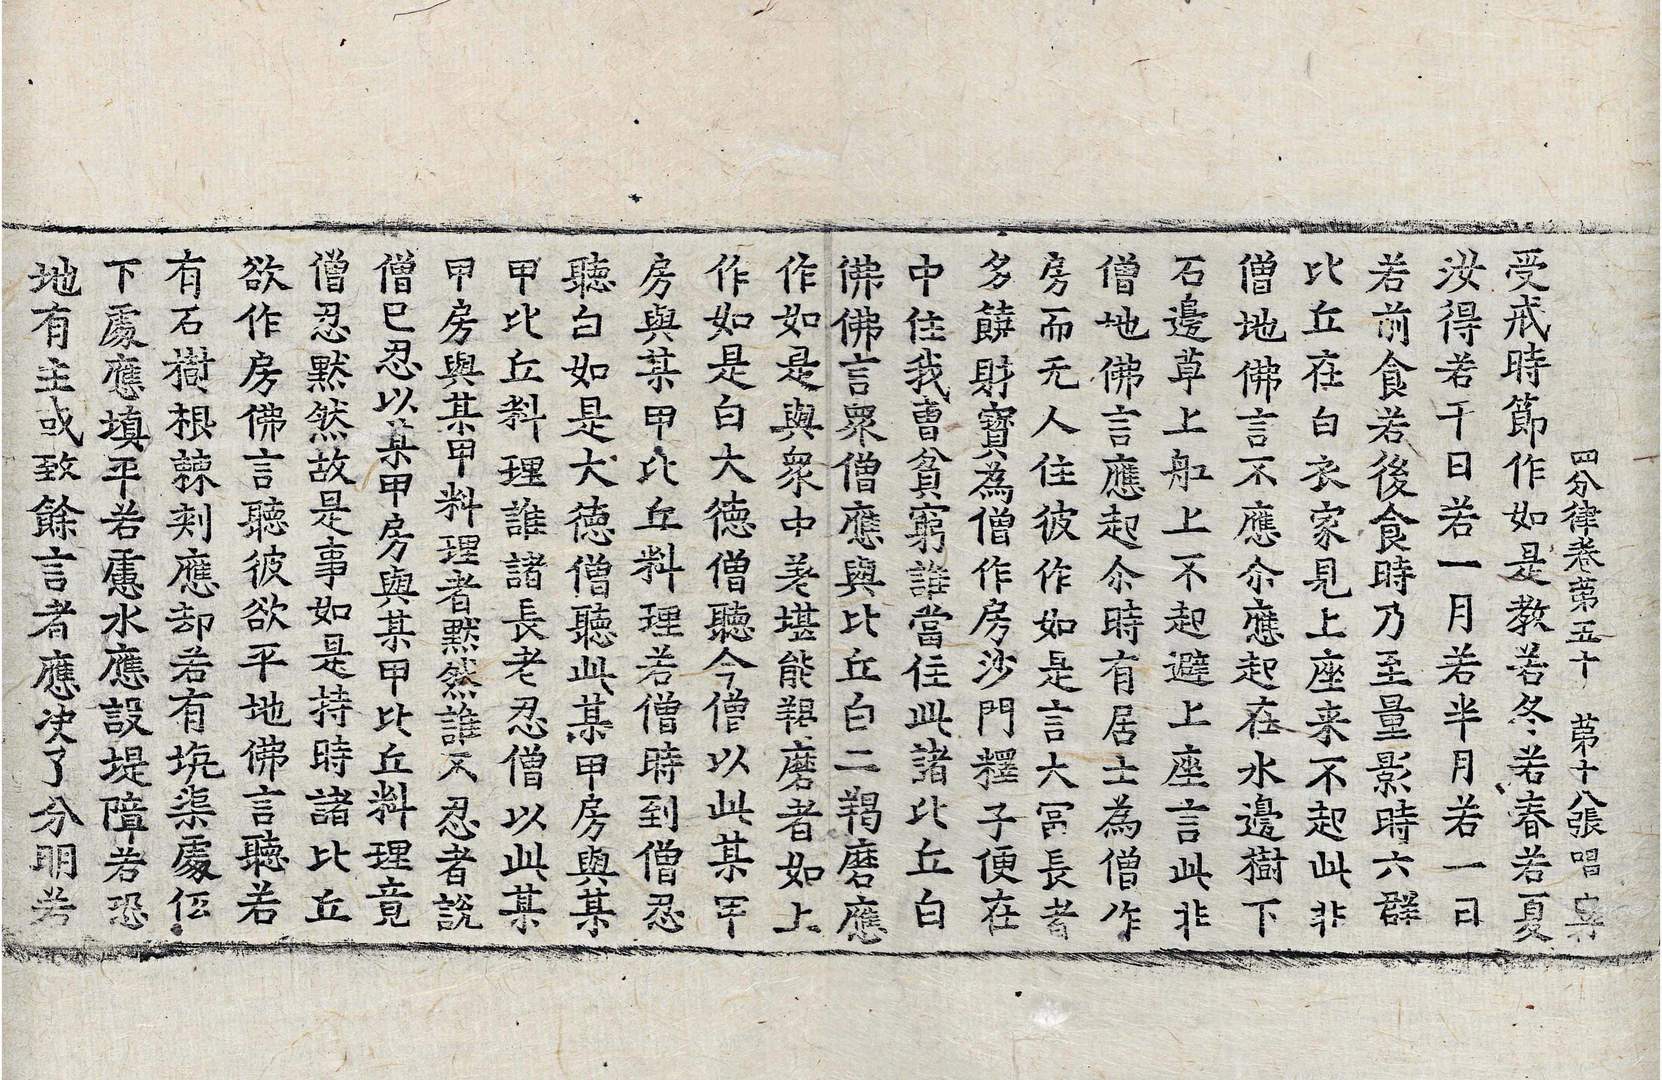 四分律卷第五十　第十八張　唱字
受戒時節作如是教若冬若春若夏
汝得若干日若一月若半月若一日
若前食若後食時乃至量影時六群
比丘在白衣家見上座来不起此非
僧地佛言不應尒應起在水邊樹下
石邊草上舡上不起避上座言此非
僧地佛言應起尒時有居士為僧作
房而无人住彼作如是言大冨長者
多饒財寶為僧作房沙門釋子便在
中住我曹貧窮誰當住此諸比丘白
佛佛言衆僧應與比丘白二羯磨應
作如是與衆中差堪能羯磨者如上
作如是白大德僧聽今僧以此某甲
房與某甲比丘料理若僧時到僧忍
聽白如是大德僧聽此某甲房與某
甲比丘料理誰諸長老忍僧以此某
甲房與某甲料理者黙然誰不忍者說
僧已忍以某甲房與某甲比丘料理竟
僧忍黙然故是事如是持時諸比丘
欲作房佛言聽彼欲平地佛言聽若
有石樹根棘刺應却若有坑渠處伾
下處應填平若慮水應設堤障若恐
地有主或致餘言者應决了分明若